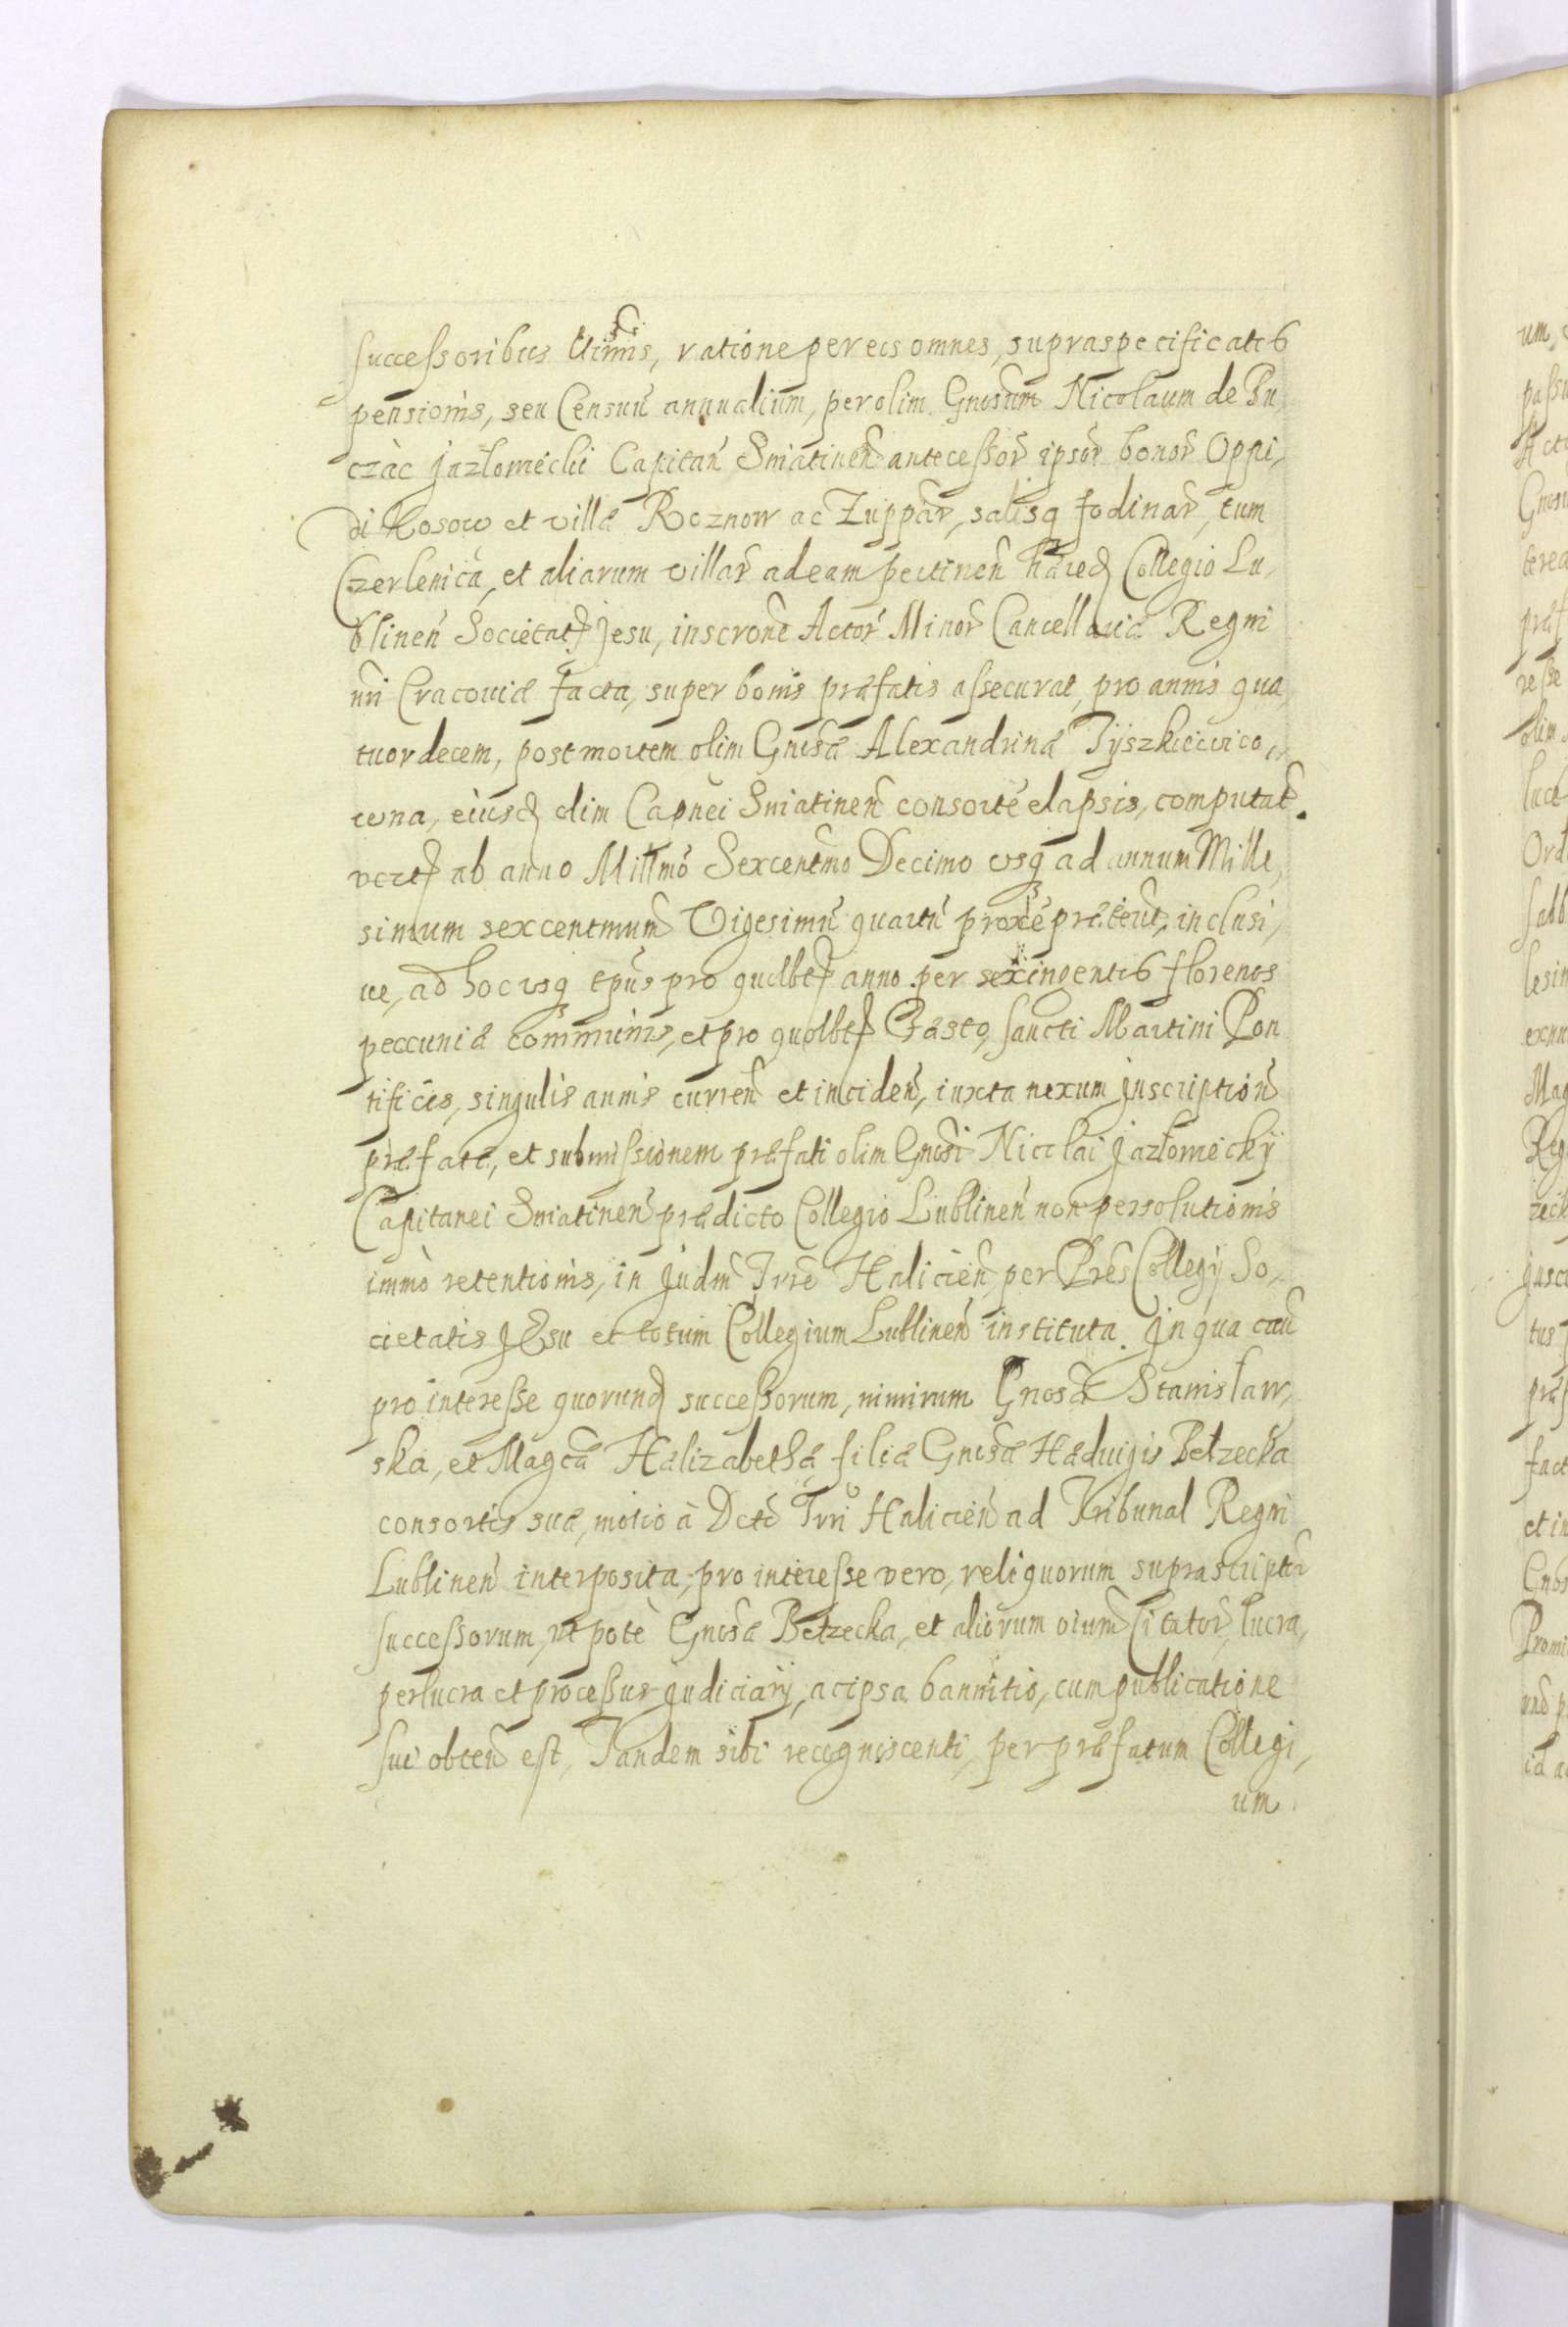 successoribus ratione per eos omnes, supraspecificatis
pensionis, seu Censuũ annualium, per olim Gnosum Nicolaum de Bu,
czàc Jazłowiecki Capitañ Sniatineñ antecessor̃ ipsor̃ bonor̃ Oppi,
di Kosow et villæ Roznow ac Zuppar̃, salisq fodinar̃, cum
Czerlenica, et aliarum villar̃ ad eam pertineñ Collegio Lu,
blineñ Societat Jesu, inscrone Actor̃ Minor̃ Cancellariæ Regni
nri Cracouiæ facta, super bonis præfatis assecurat, pro annis qua,
tuordecem, post mortem olim Gnosæ Alexandrinæ Tyszkiewico,
wna, eiusd olim Capnei Sniatineñ consorte elapsis, computat.
ab anno Millmo Sexcentmo Decimo vsq ad annum Mille,
simum sexcentmum Vigesimũ quartũ proxe præterit, inclusi,
ue, ad hoc vsq tpus pro quolbt anno per sexingentis florenos
peccuniæ communis, et pro quolbt Fæsto, Sancti Martini Pon
tificis, singulis annis curreñ et incideñ, iuxta nexum Jnscriptioñ
præfatæ, et submissionem præfati olim Gnosi Nicolai Jazłowiecky
Capitanei Sniatineñ prædicto Collegio Lublineñ non persolutionis
immò retentionis, in Judm Trre Halicieñ per Pres Collegÿ So,
cietatis JEsu et totum Collegium Lublineñ instituta. Jn qua cau
pro interesse quorund successorum, nimirum Gnosæ Stanisław,
ska, et Magcæ Hælizabethæ filiæ Gnosæ Hæduigis Bełzecka
consortis suæ, motio à Dcto Trri Halicieñ ad Tribunal Regni
Lublineñ interposita, pro interesse vero, reliquorum suprascriptor̃
successorum, vt potè Gnosæ Bełzecka, et aliorum oium Citator̃, lucra,
perlucra et processus judiciarÿ, ac ipsa bannitio, cum publicatione
sui obteñ est, Tandem sibi recognoscenti, per præfatum Collegi,
um